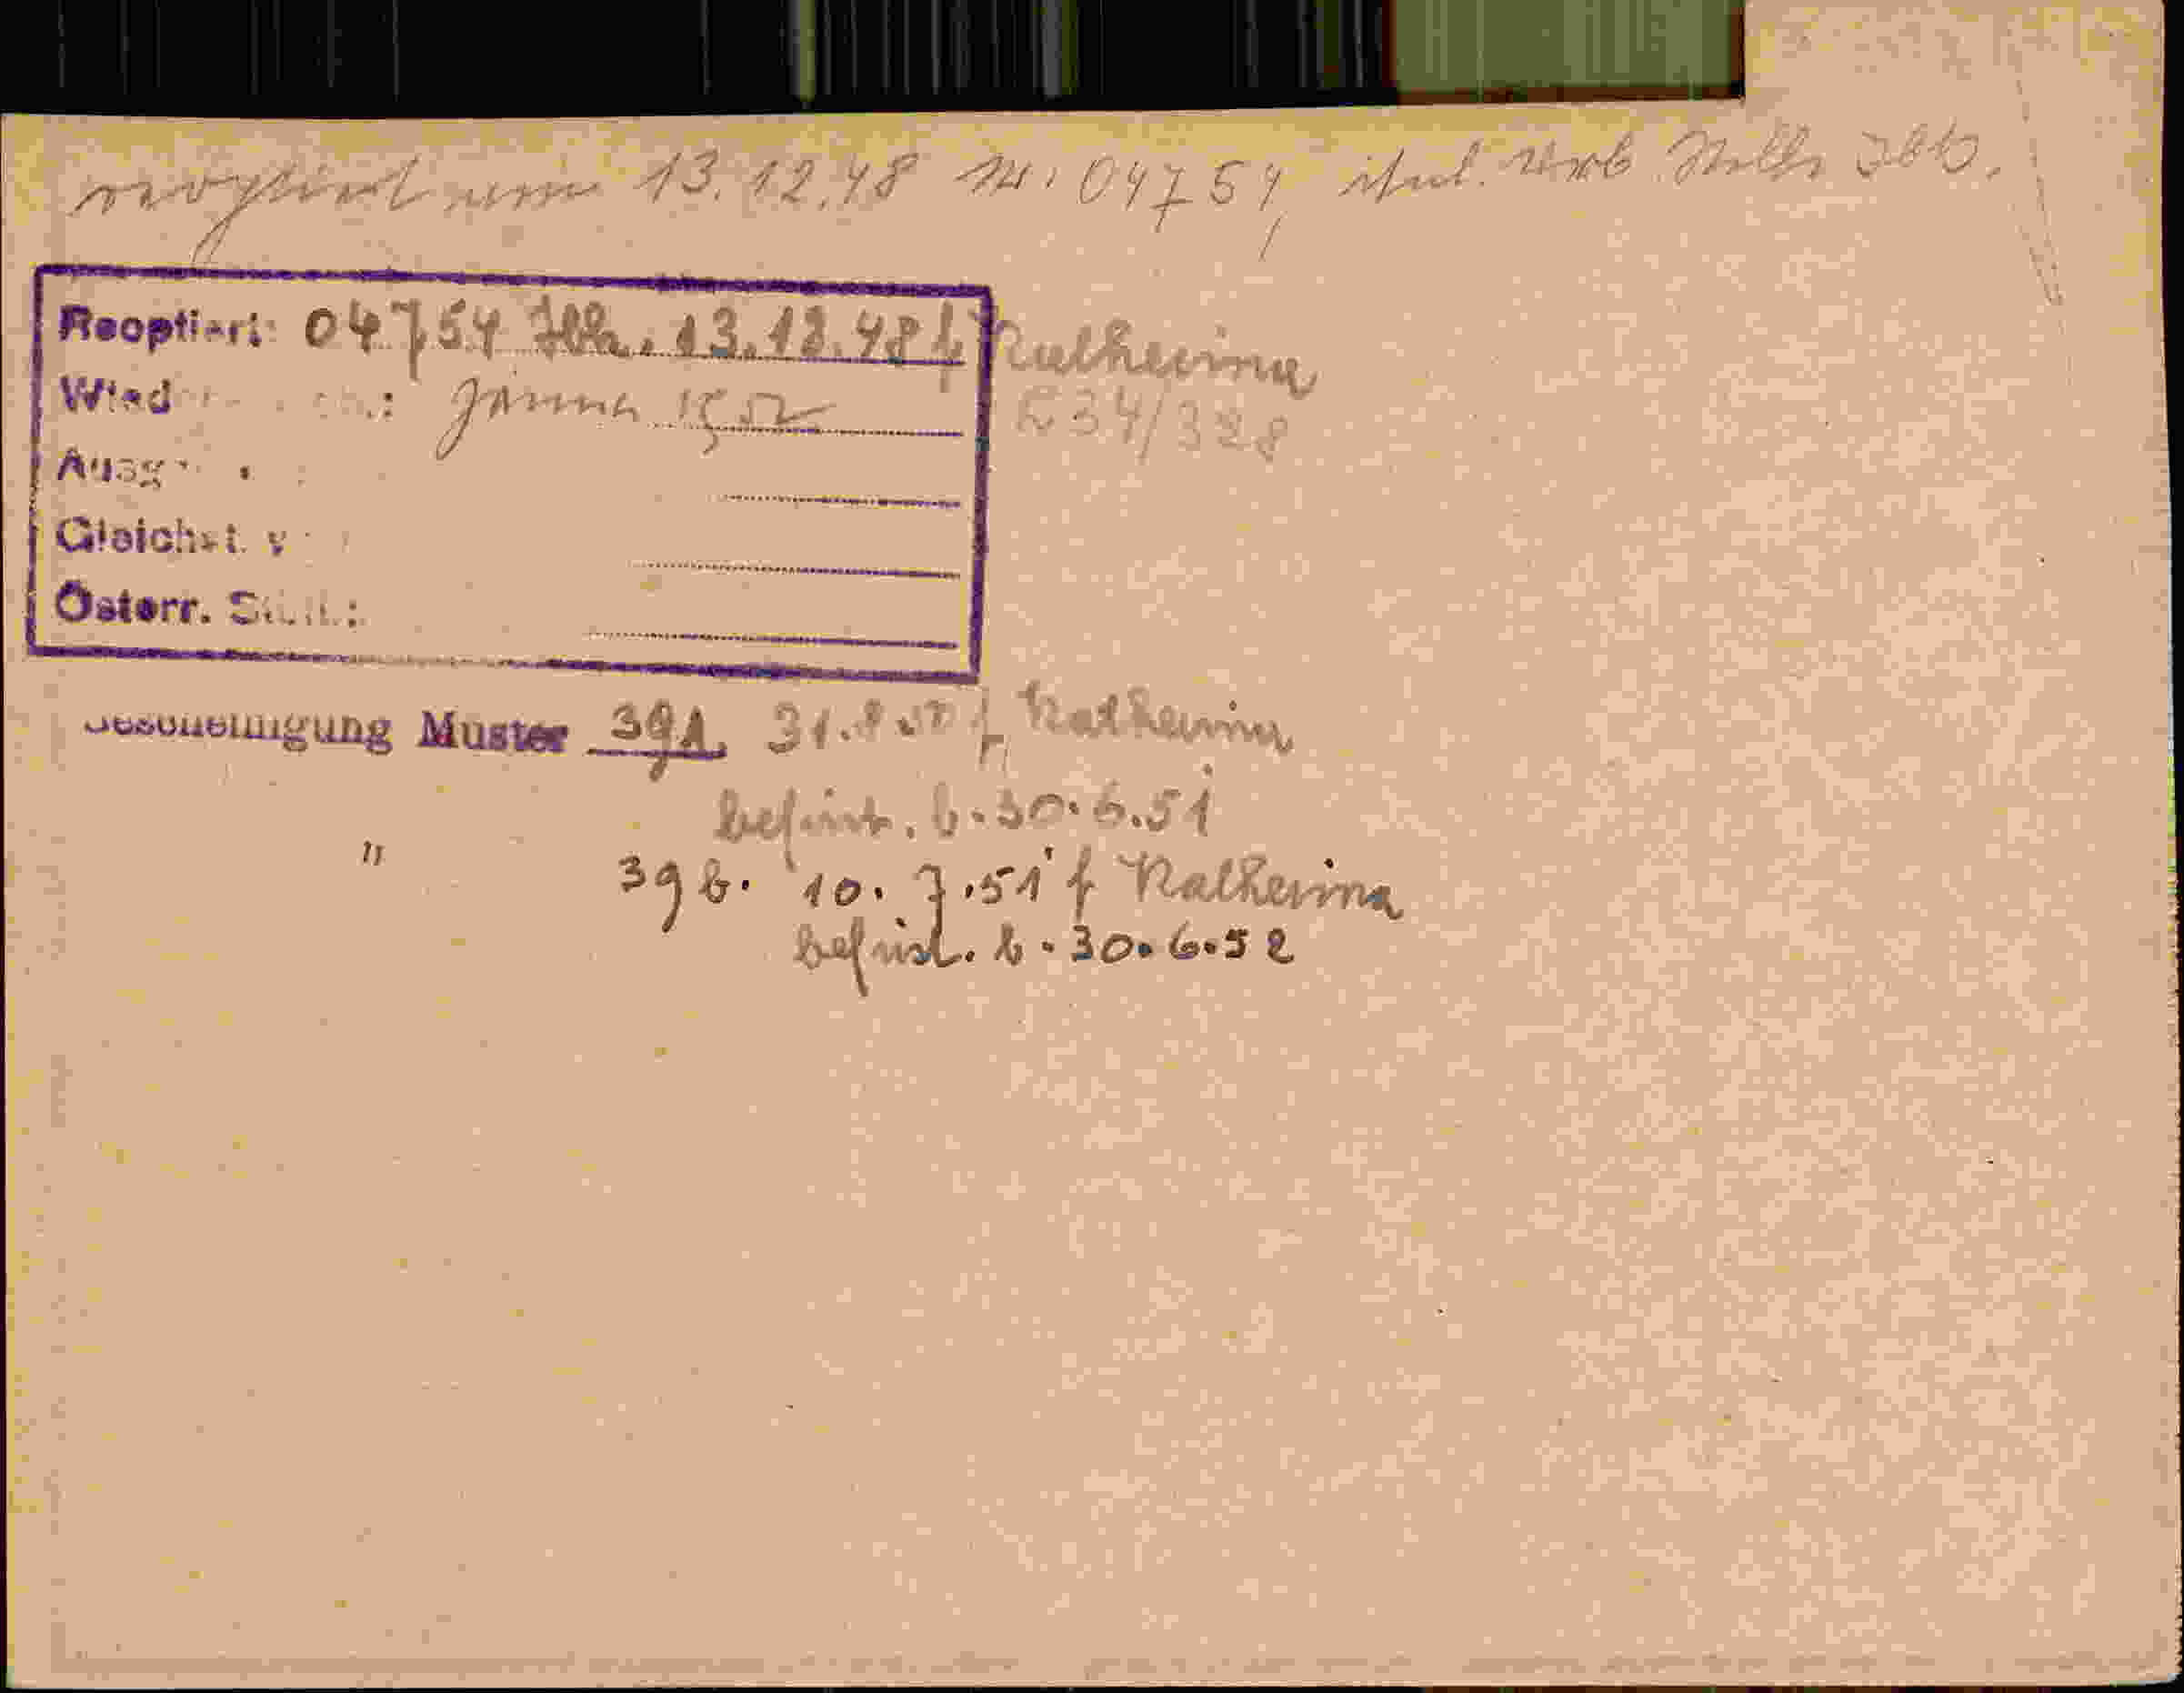 reoptiert vom 13.12.48 Nr. 04754, ital. Verb. Stelle Ibk.
Reoptiert: 04754 Ibk. 13.12.48 f. Katharina
Wied : Jänner 1952 E34/328
Ausg
Gleichst. v
Österr. St
Bescheinigung Muster 39A. 31.8.50 f Katharina
befrist. b. 30.6.51
" 39b. 10.7.51 f Katharina
befrist. b. 30.6.52